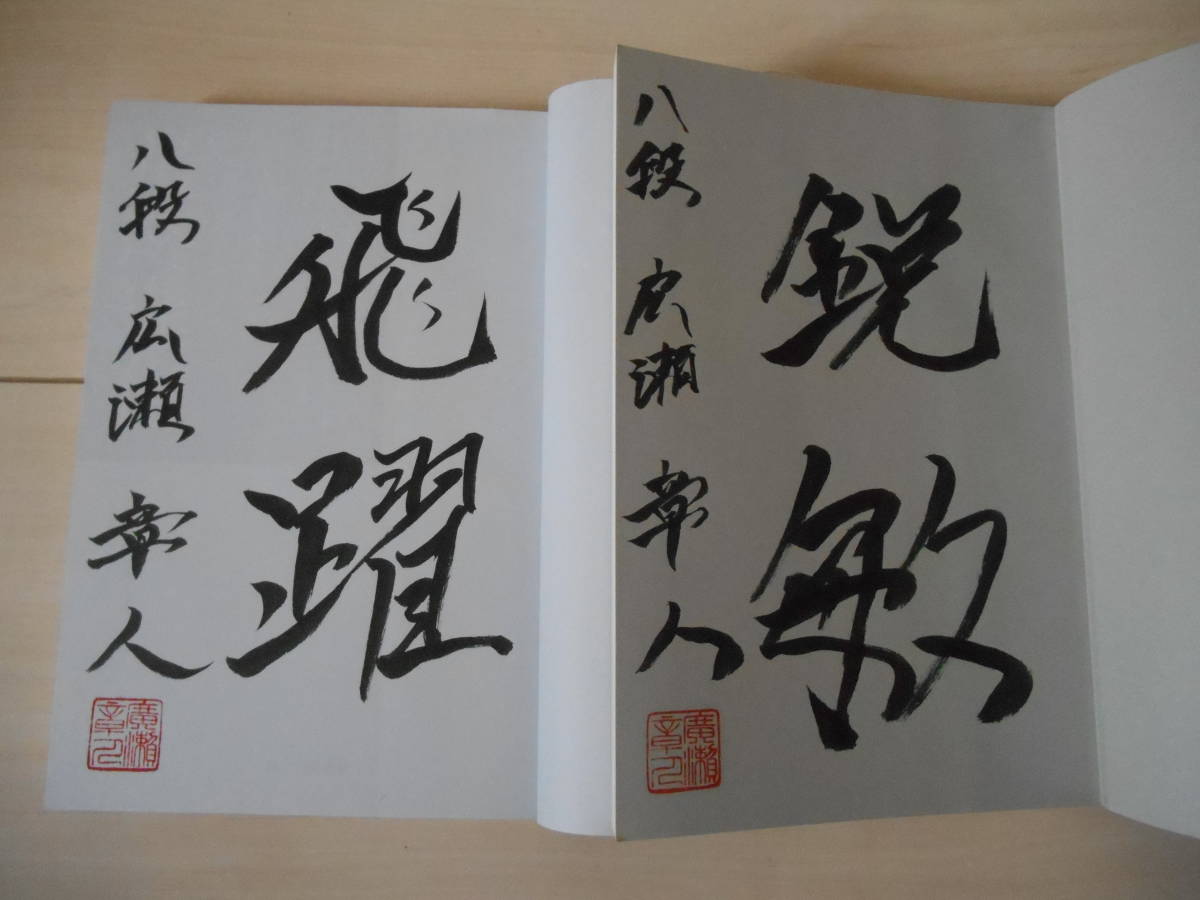 飛躍
八段 広瀬 章人
廣瀬章人
鋭敏
八段 広瀬 章人
廣瀬章人